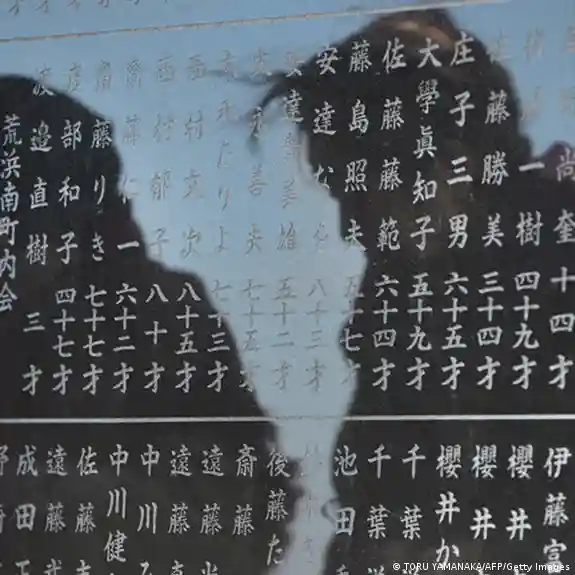 尚奎 十四才
一樹 四十九才
佐藤勝美 三十四才
庄子三男 六十五才
大學眞知子 五十九才
佐藤藤範 六十四才
藤島照夫 五十七才
安達な 八十三才
安達 美雄 五十二才
善夫 七十五才
七十三才
西村文次 八十五才
西村郁子 八十才
齋藤仁一 六十二才
齋藤りき 七十七才
部和子 四十七才
渡邉直樹 三才
荒浜南町内会
伊藤富
櫻井
櫻井
櫻井か
千葉
千葉
池田
後藤た
斎藤
遠藤
遠藤
中川
中川健
佐藤
遠藤
成田
野
© TORU YAMANAKA/AFP/Getty Images